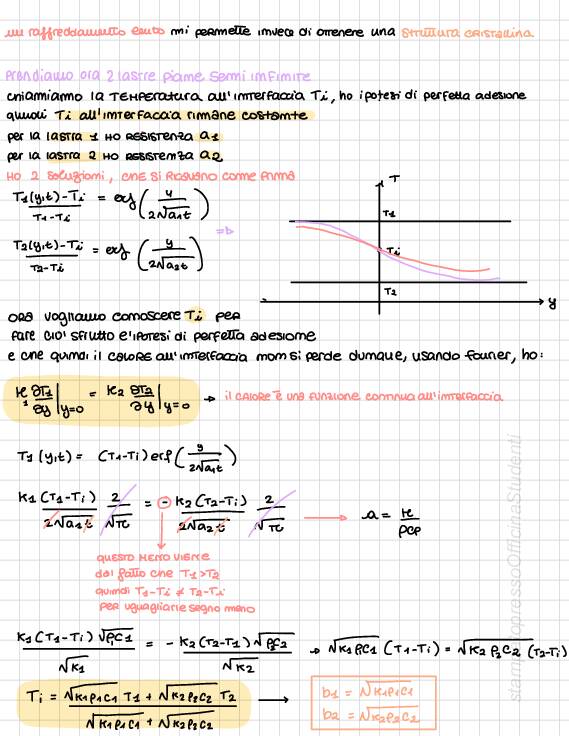 un raffreddamento lento mi permette invece di ottenere una STRUTTURA CRISTALLINA.
Prendiamo ora 2 lastre piane semi infinite
chiamiamo la TEMPERATURA all'interfaccia Ti, ho ipotesi di perfetta adesione
quindi Ti all'interfaccia rimane costante
per la lastra 1 HO RESISTENZA a1
per la lastra 2 HO RESISTENZA a2
HO 2 SOLUZIONI, CHE SI RICAVANO COME PRIMA
T1(y,t)-Ti / T1-Ti = erf ( y / 2√a1t )
T2(y,t)-Ti / T2-Ti = erf ( y / 2√a2t ) =>
T
T1
Ti
T2
y
ORA vogliamo conoscere Ti PER
fare CIO' sfrutto l'ipotesi di perfetta adesione
e che quindi il CALORE all'interfaccia non si perde dunque, usando fourier, ho:
K1 ∂T1/∂y |y=0 = K2 ∂T2/∂y |y=0 → il CALORE È una funzione continua all'interfaccia
T1(y,t) = (T1-Ti) erf ( y / 2√a1t )
K1(T1-Ti) / 2√a1t 2/√π = - K2(T2-Ti) / 2√a2t 2/√π → a = K / ρcp
QUESTO MENO VIENE
dal fatto che T1>T2
quindi T1-Ti ≠ T2-Ti
PER uguagliare segno meno
K1(T1-Ti)√ρ1C1 / √K1 = - K2(T2-T1)√ρ2C2 / √K2 → √K1ρ1C1 (T1-Ti) = √K2ρ2C2 (T2-Ti)
Ti = √K1ρ1C1 T1 + √K2ρ2C2 T2 / √K1ρ1C1 + √K2ρ2C2 → b1 = √K1ρ1C1
b2 = √K2ρ2C2
stampato presso Officina Studenti